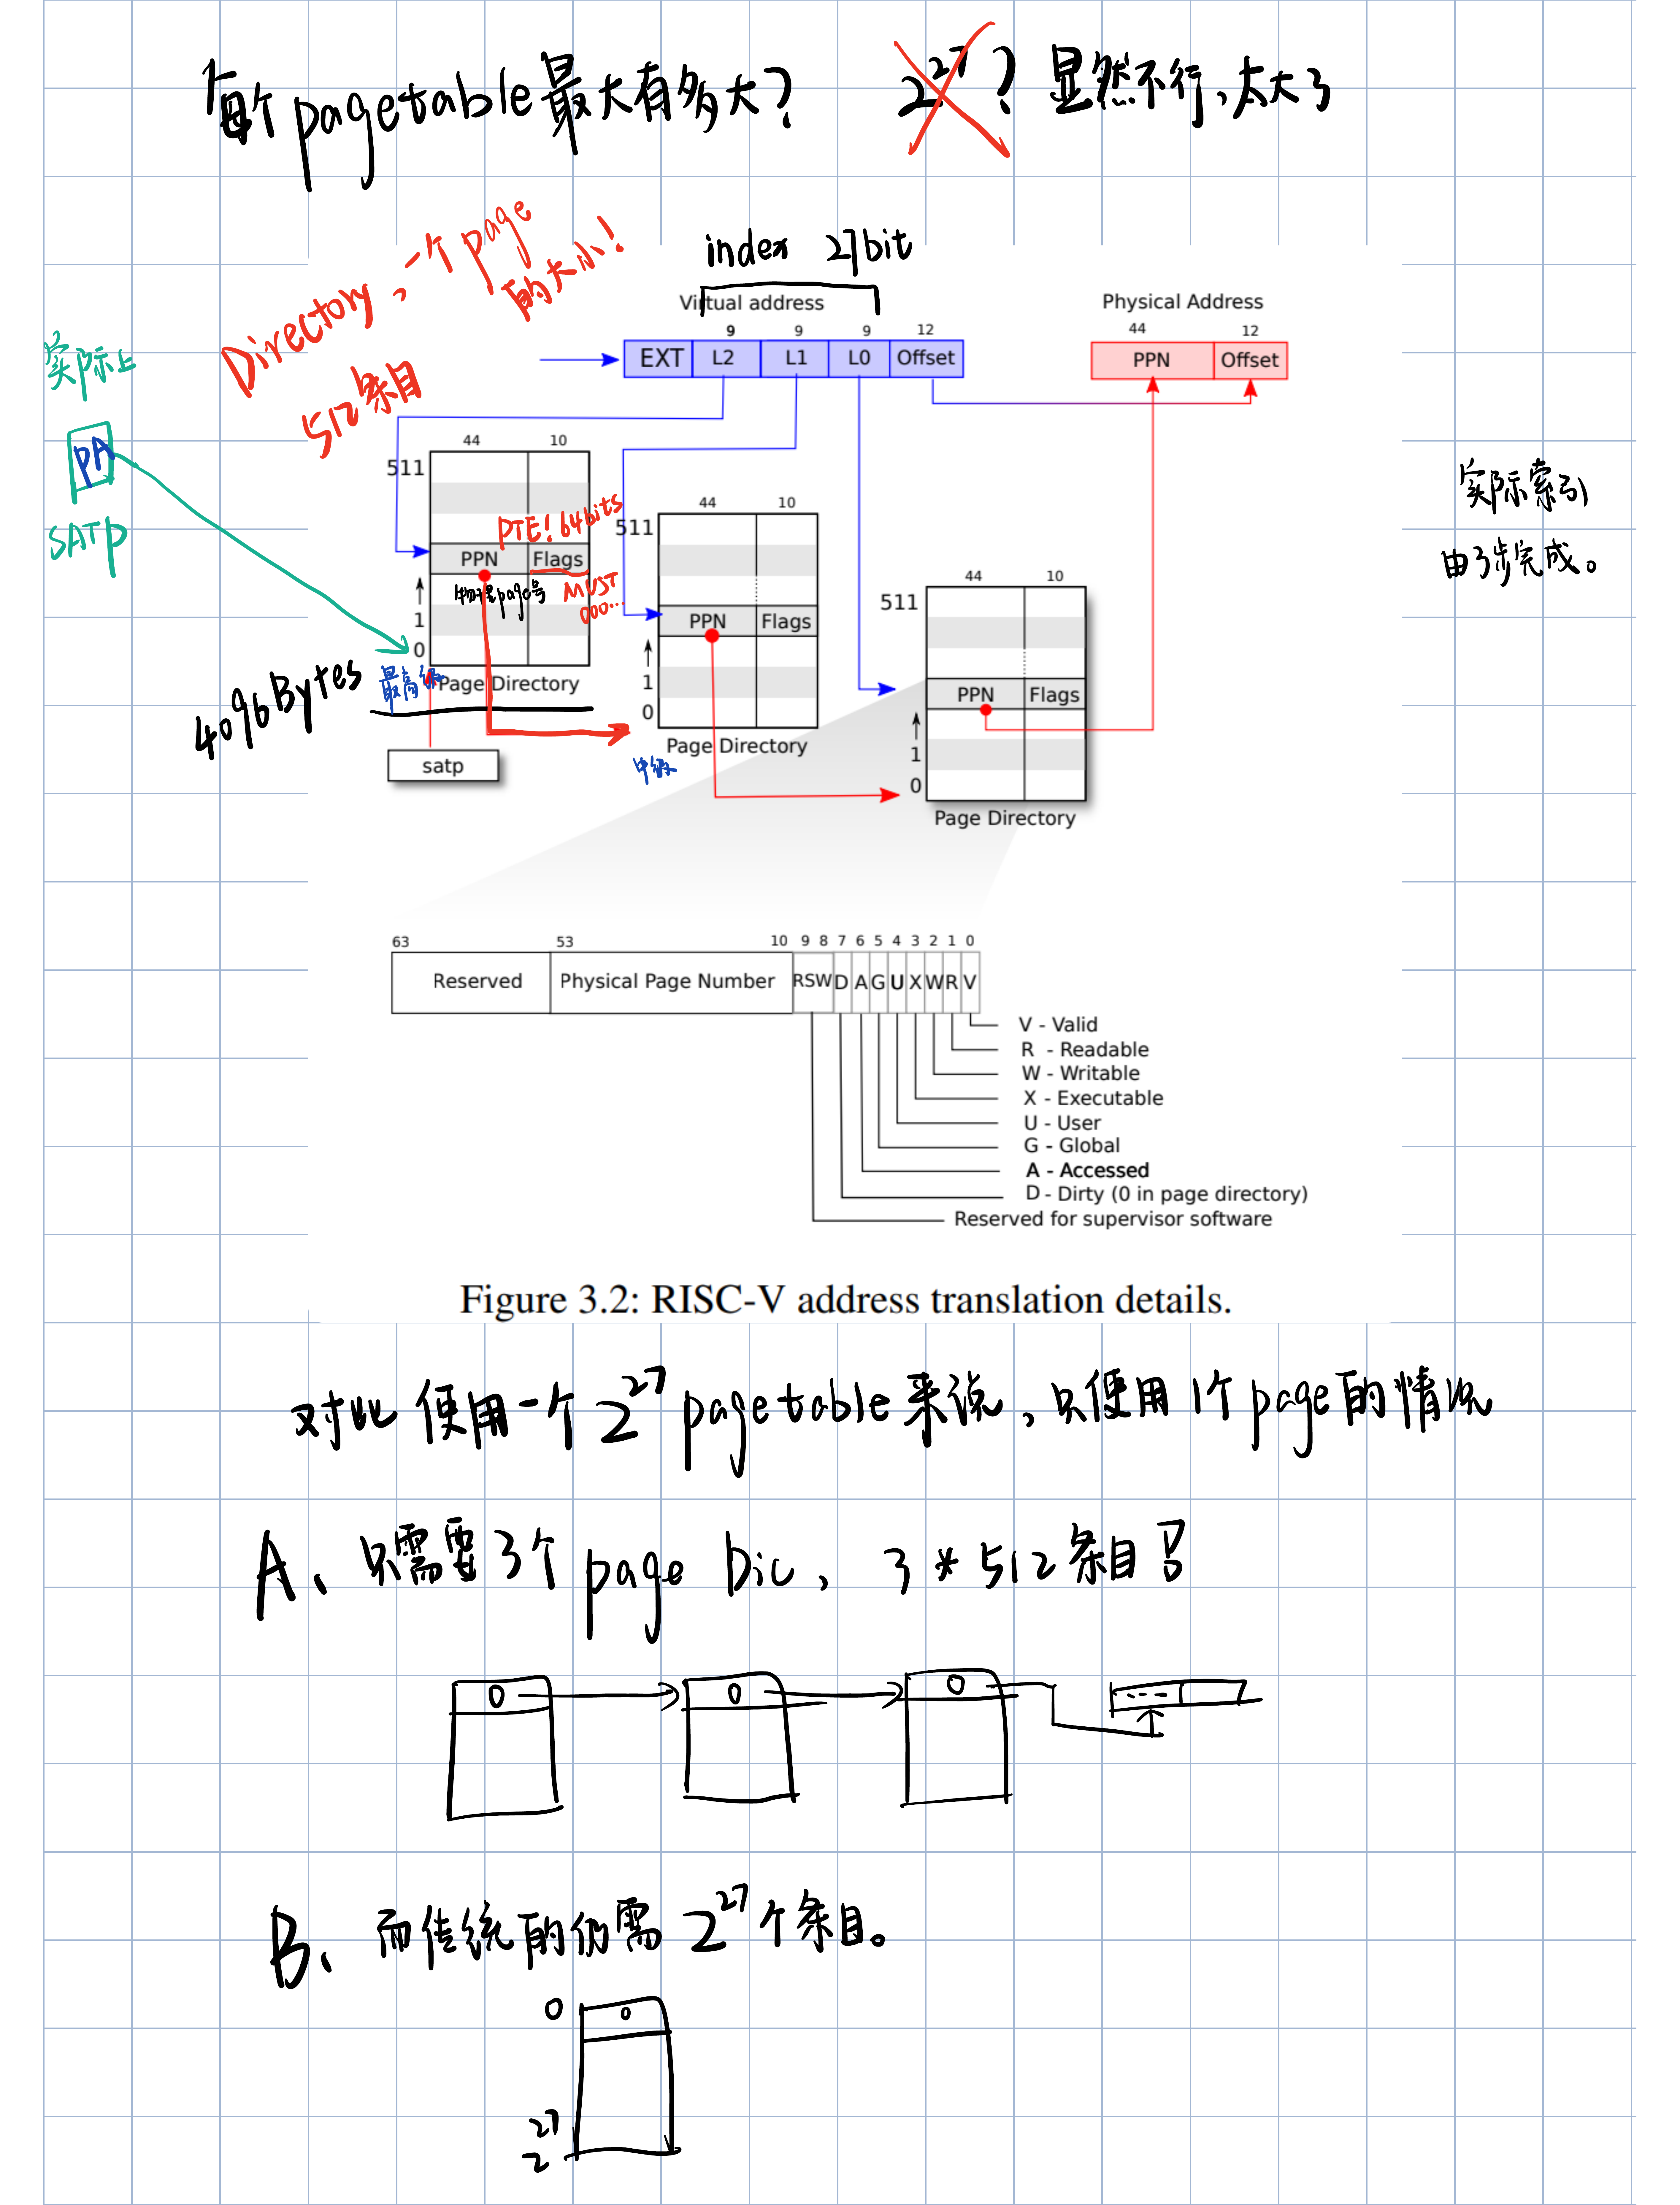 每个pagetable最大有多大? 2^27? 显然不行,太大了
Directory,一个page
的大小!
512条目
index 27bit
Virtual address
Physical Address
9 9 9 12
44 12
EXT L2 L1 L0 Offset
PPN Offset
实际上
PA
SATP
44 10
511
PTE! 64bits
PPN Flags
物理page号
MUST
000...
1
0
最高级
Page Directory
4096Bytes
satp
44 10
511
PPN Flags
1
0
Page Directory
中级
44 10
511
PPN Flags
1
0
Page Directory
实际索引
由3步完成。
63 53 10 9 8 7 6 5 4 3 2 1 0
Reserved Physical Page Number RSW D A G U X W R V
V - Valid
R - Readable
W - Writable
X - Executable
U - User
G - Global
A - Accessed
D - Dirty (0 in page directory)
Reserved for supervisor software
Figure 3.2: RISC-V address translation details.
对比使用一个2^27 pagetable来说,只使用1个page的情况
A、只需要3个page Dic, 3*512条目
0 0 0
B、而传统的仍需2^27个条目。
0 0
2^27